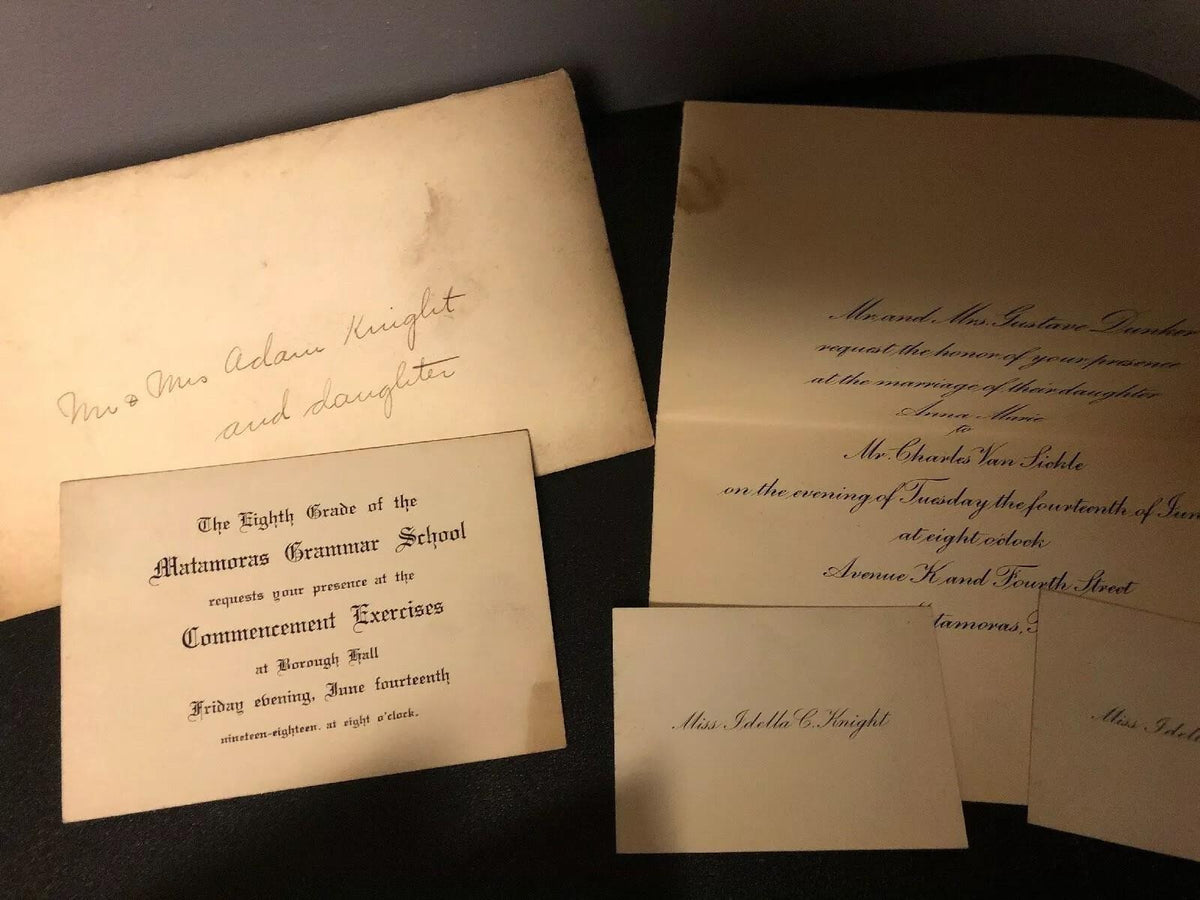 Mr & Mrs Adam Knight
and daughter
The Eighth Grade of the
Matamoras Grammar School
requests your presence at the
Commencement Exercises
at Borough Hall
Friday evening, June fourteenth
nineteen-eighteen. at eight o'clock.
Mr. and Mrs. Gustave Dunker
request the honor of your presence
at the marriage of their daughter
Anna Marie
to
Mr. Charles Van Sickle
on the evening of Tuesday the fourteenth of Jun
at eight o'clock
Avenue K and Fourth Street
tamoras,
Miss Idella C. Knight
Miss Idell